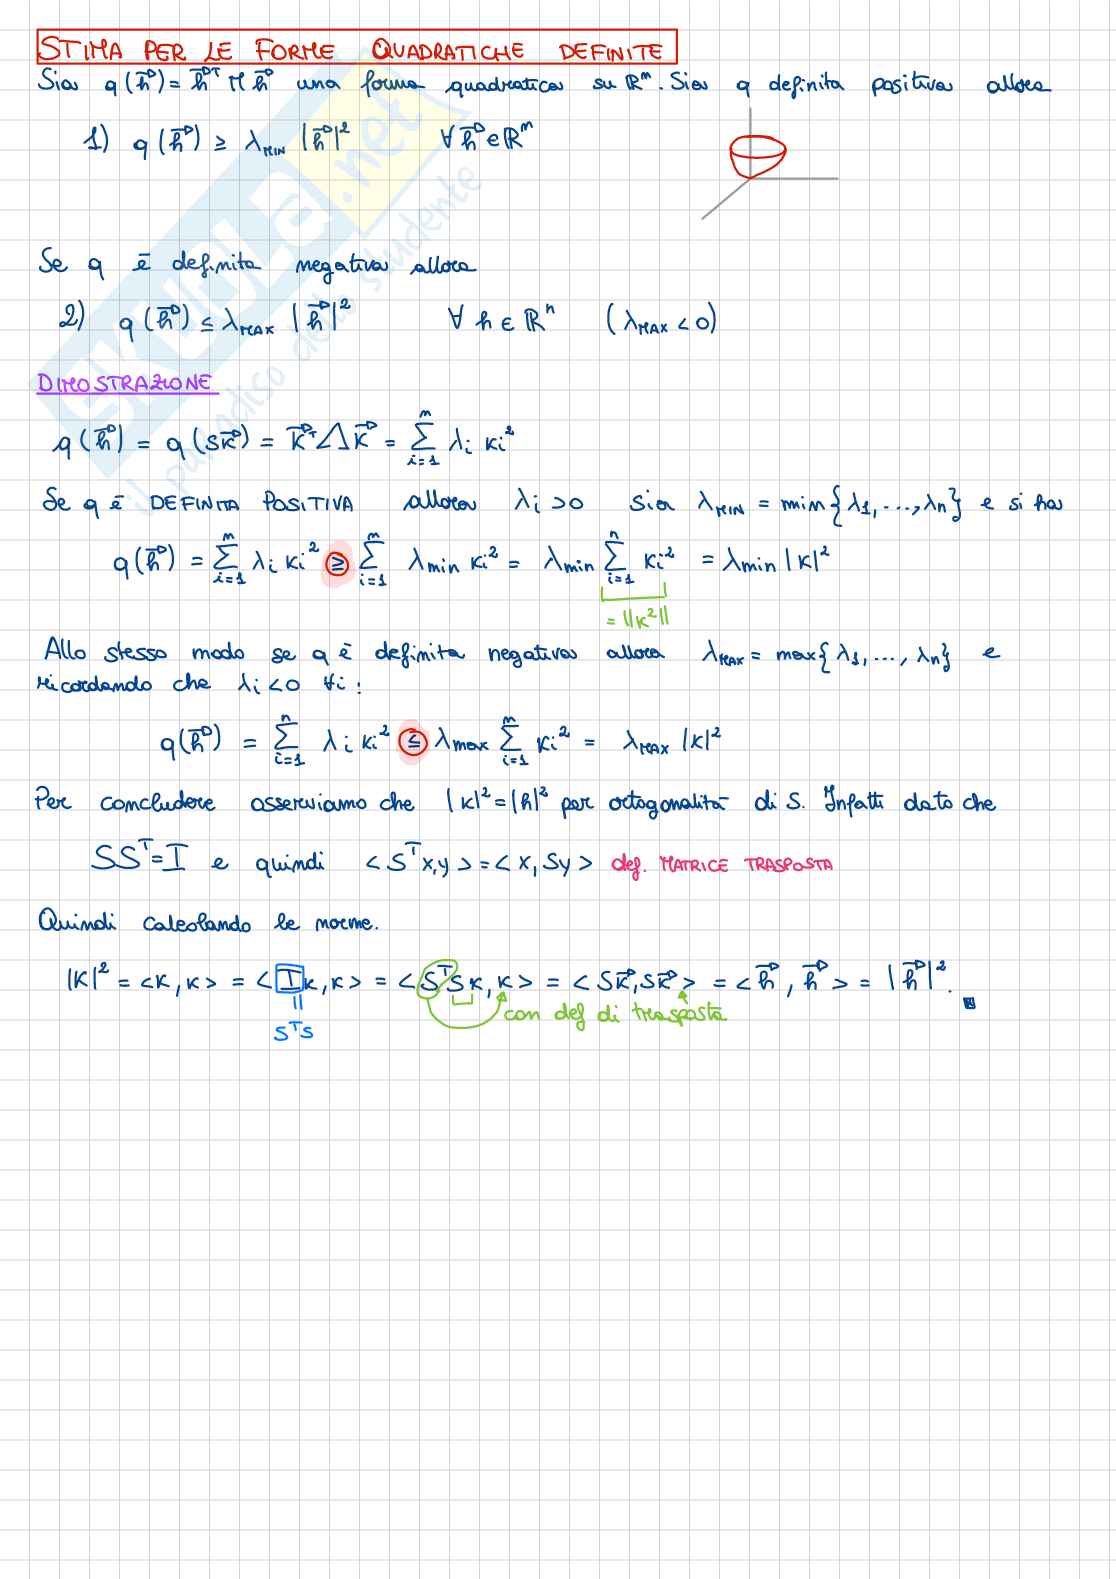 STIMA PER LE FORME QUADRATICHE DEFINITE
Sia q(h⃗) = h⃗ᵀ M h⃗ una forma quadratica su ℝⁿ. Sia q definita positiva allora
1) q(h⃗) ≥ λ_MIN |h⃗|² ∀ h⃗ ∈ ℝⁿ
Se q è definita negativa allora
2) q(h⃗) ≤ λ_MAX |h⃗|² ∀ h ∈ ℝⁿ (λ_MAX < 0)
DIMOSTRAZIONE
q(h⃗) = q(Sk⃗) = k⃗ᵀ Λ k⃗ = ∑_{i=1}^{n} λi ki²
Se q è DEFINITA POSITIVA allora λi > 0 sia λ_MIN = min{λ1, ..., λn} e si ha
q(h⃗) = ∑_{i=1}^{n} λi ki² ≥ ∑_{i=1}^{n} λmin ki² = λmin ∑_{i=1}^{n} ki² = λmin |k|²
= ||k²||
Allo stesso modo se q è definita negativa allora λ_MAX = max{λ1, ..., λn} e
ricordando che λi < 0 ∀i:
q(h⃗) = ∑_{i=1}^{n} λi ki² ≤ λmax ∑_{i=1}^{n} ki² = λ_MAX |k|²
Per concludere osserviamo che |k|² = |h|² per ortogonalità di S. Infatti dato che
SSᵀ = I e quindi <Sᵀx,y> = <x, Sy> def. MATRICE TRASPOSTA
Quindi calcolando le norme.
|k|² = <k,k> = <Ik,k> = <SᵀSk,k> = <Sk⃗,Sk⃗> = <h⃗,h⃗> = |h⃗|².
con def di trasposta
SᵀS
SKUOLA.net
il paradiso dello studente